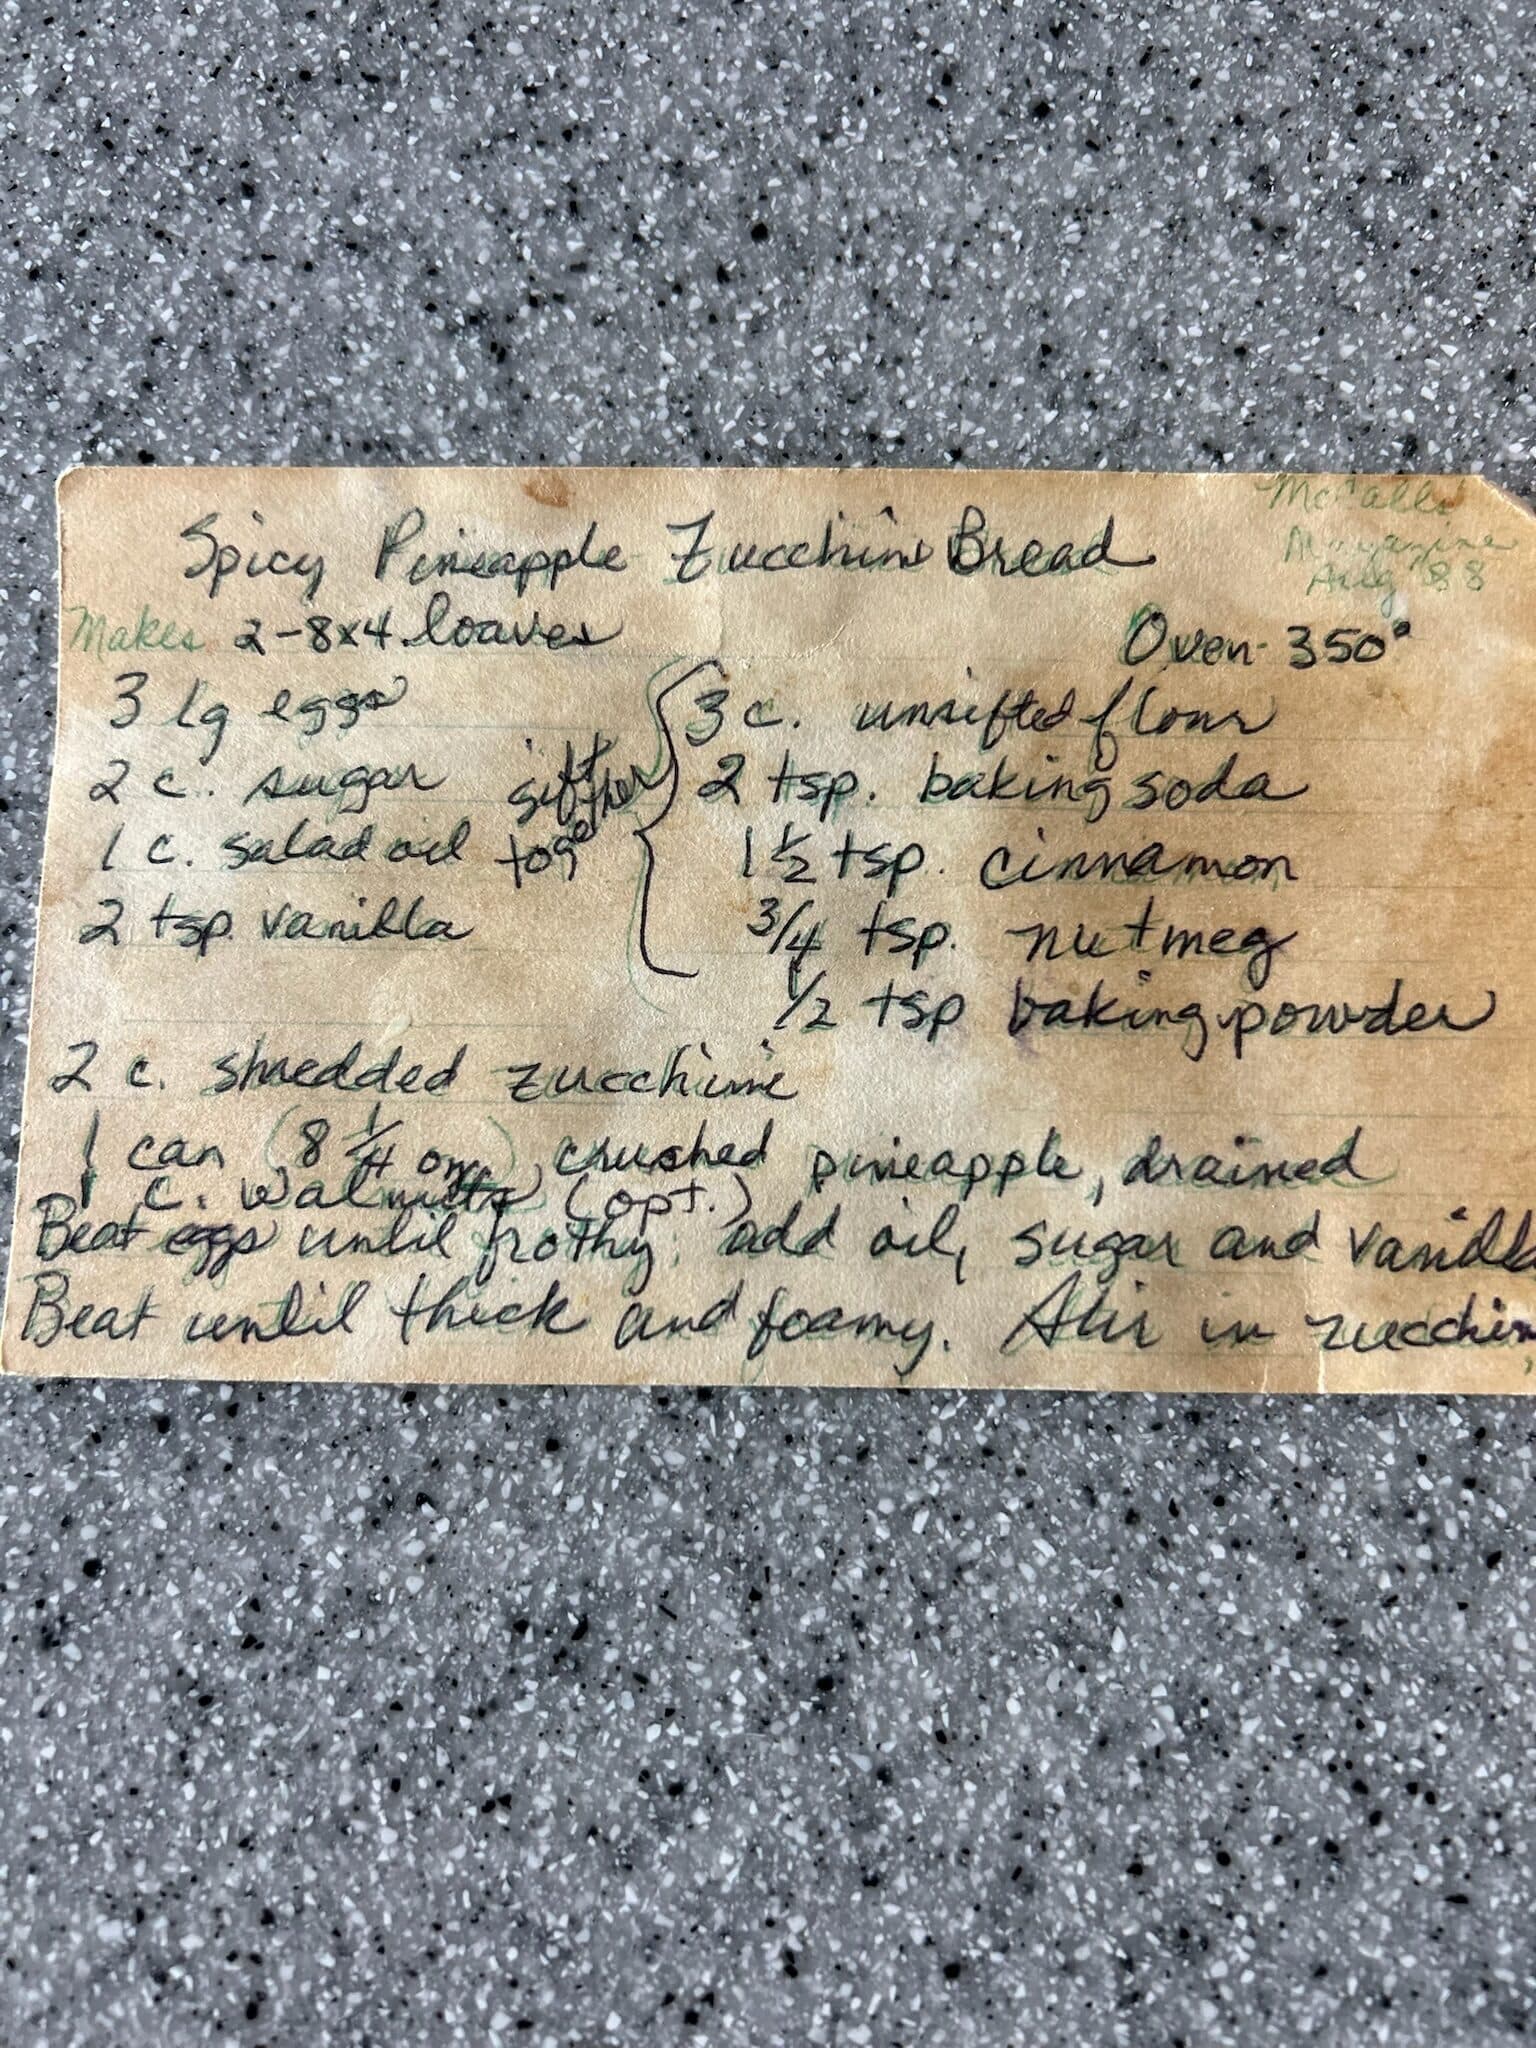 McCalls
Magazine
Aug 88
Spicy Pineapple Zucchini Bread
Makes 2-8x4 loaves
Oven 350°
3 lg eggs
2 c. sugar
1 c. salad oil
2 tsp. vanilla
sift
together
3 c. unsifted flour
2 tsp. baking soda
1 1/2 tsp. cinnamon
3/4 tsp. nutmeg
1/2 tsp baking powder
2 c. shredded zucchini
1 can (8 1/4 oz.) crushed pineapple, drained
1 c. walnuts (opt.)
Beat eggs until frothy; add oil, sugar and vanilla
Beat until thick and foamy. Stir in zucchin